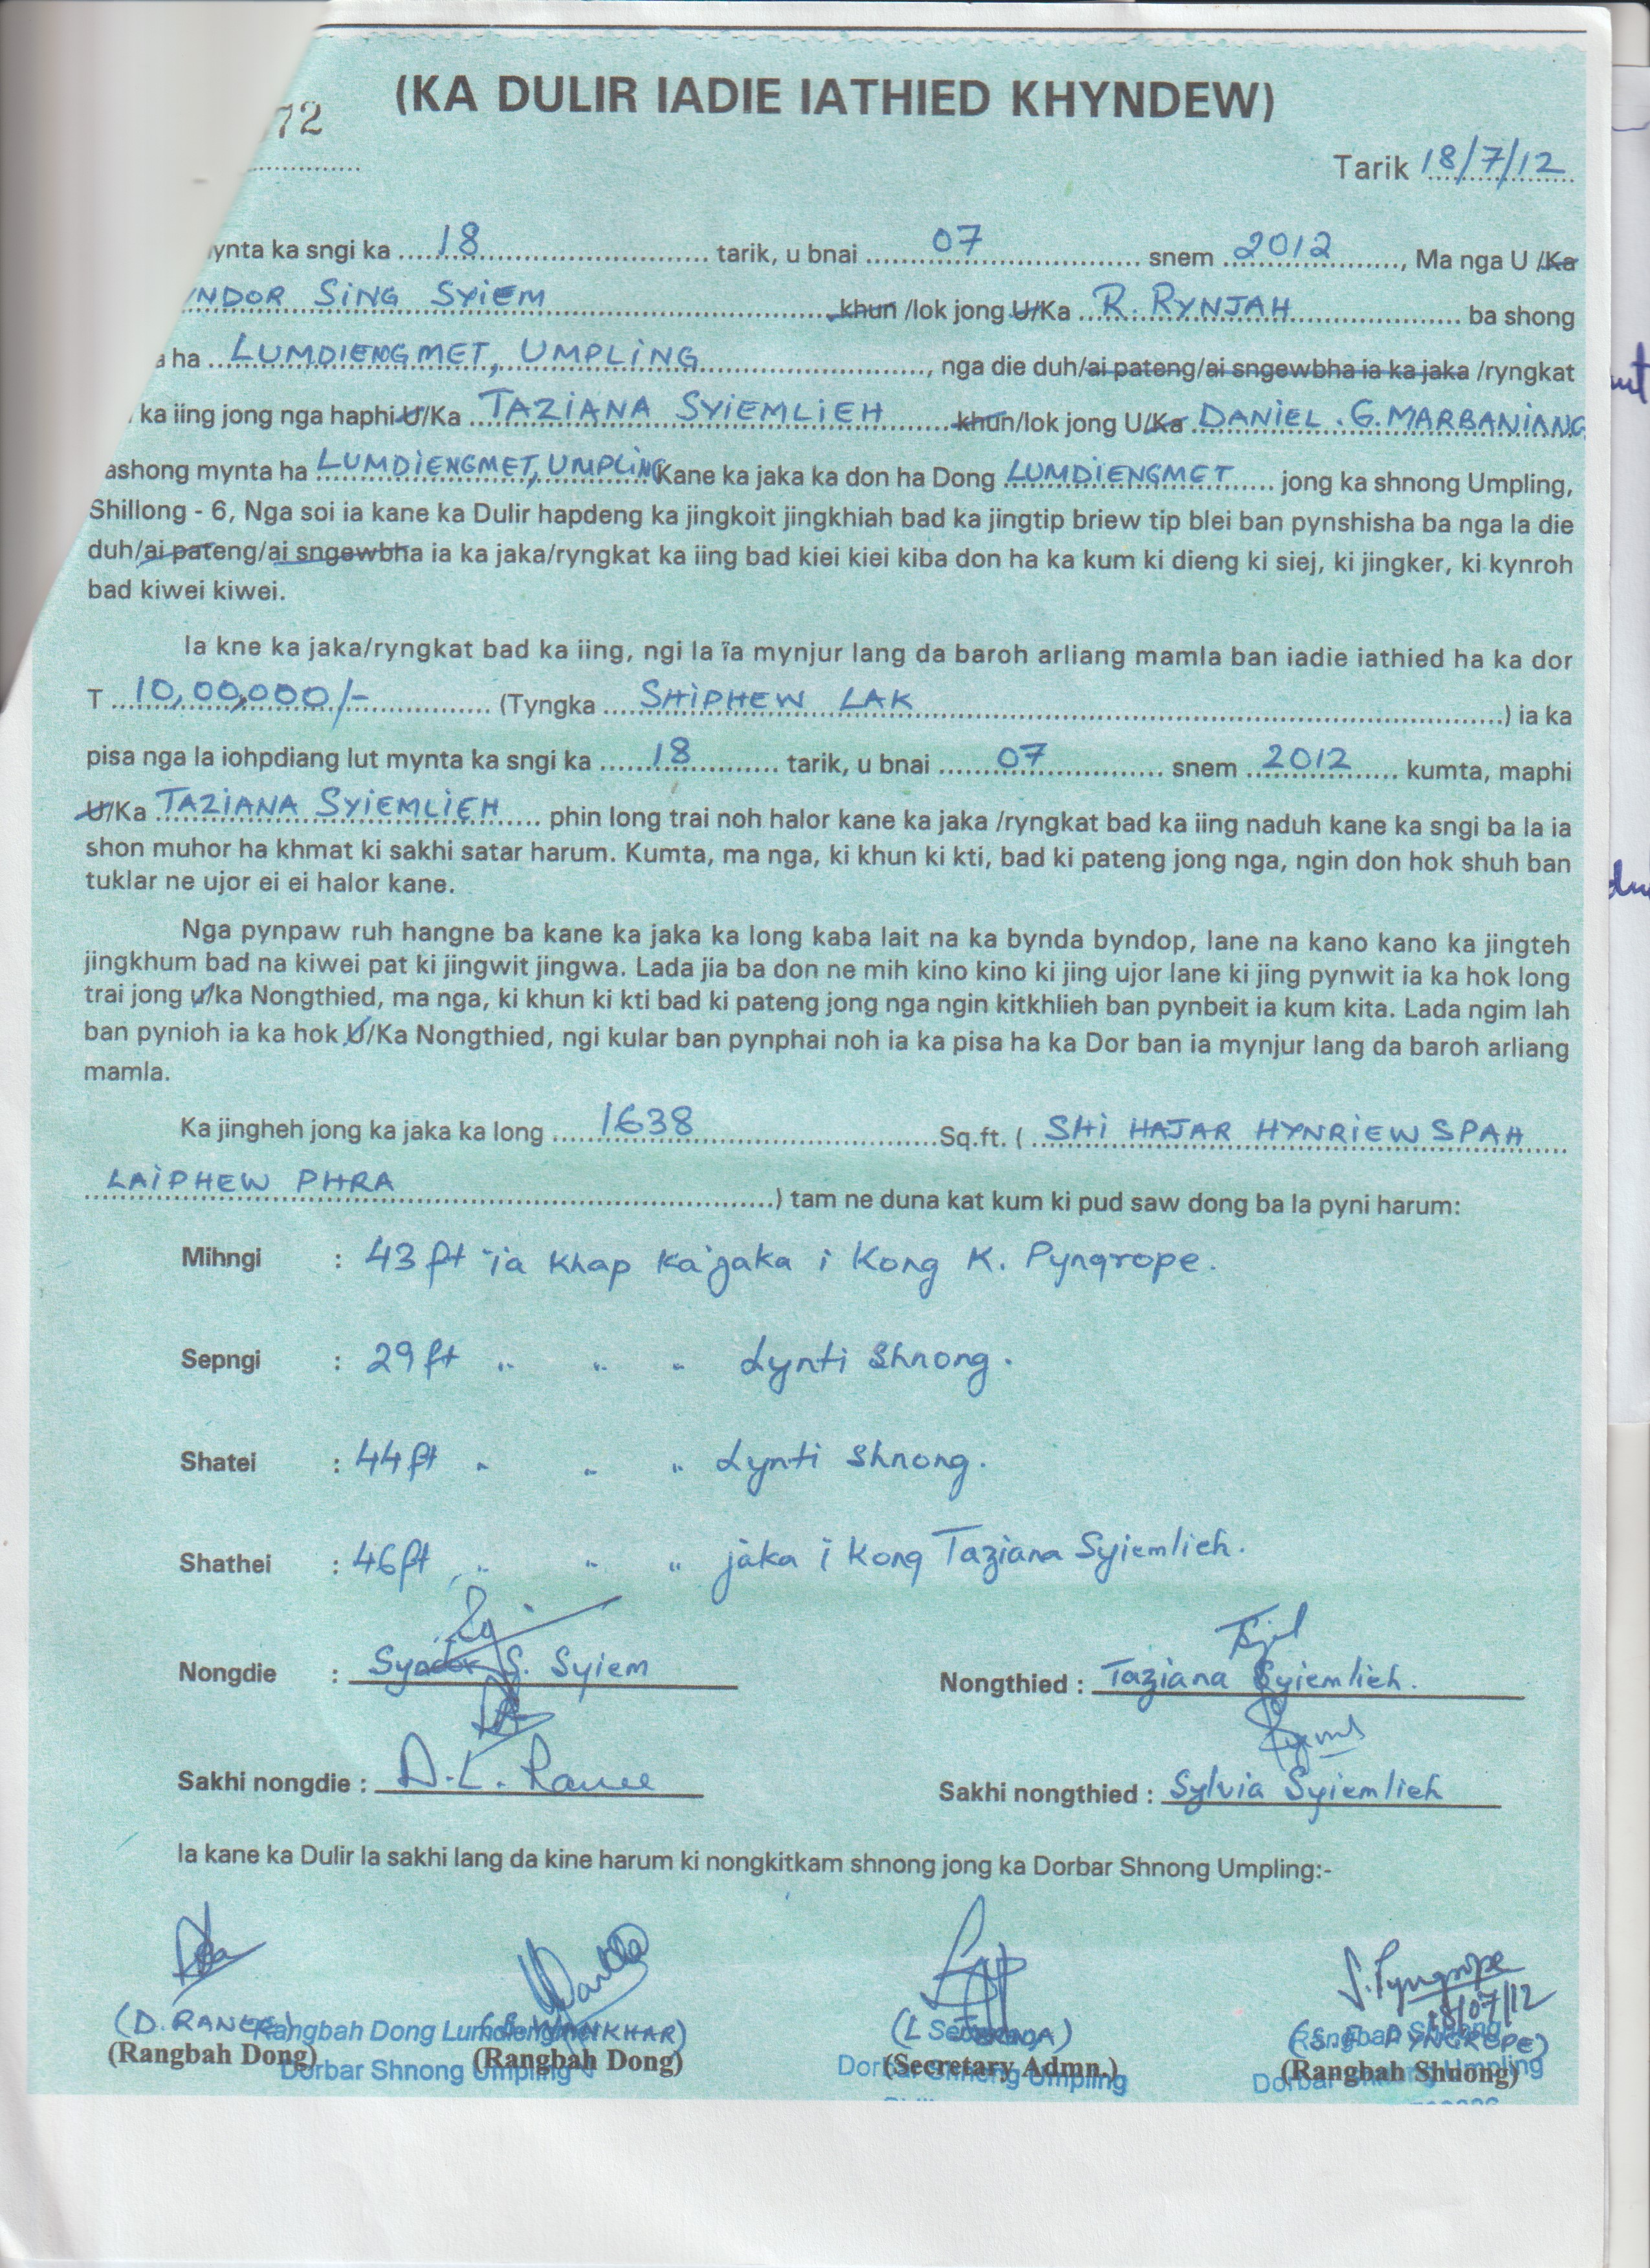 (KA DULIR IADIE IATHIED KHYNDEW)
72
Tarik 18/7/12
ynta ka sngi ka 18 tarik, u bnai 07 snem 2012, Ma nga U /Ka
NDOR SING SYIEM khun /lok jong U/Ka R. RYNJAH ba shong
ha LUMDIENGMET, UMPLING, nga die duh/ai pateng/ai sngewbha ia ka jaka /ryngkat
ka iing jong nga haphi U/Ka TAZIANA SYIEMLIEH khun/lok jong U/Ka DANIEL . G. MARBANIANG
ashong mynta ha LUMDIENGMET, UMPLING Kane ka jaka ka don ha Dong LUMDIENGMET jong ka shnong Umpling,
Shillong - 6, Nga soi ia kane ka Dulir hapdeng ka jingkoit jingkhiah bad ka jingtip briew tip blei ban pynshisha ba nga la die
duh/ai pateng/ai sngewbha ia ka jaka/ryngkat ka iing bad kiei kiei kiba don ha ka kum ki dieng ki siej, ki jingker, ki kynroh
bad kiwei kiwei.
Ia kne ka jaka/ryngkat bad ka iing, ngi la ïa mynjur lang da baroh arliang mamla ban iadie iathied ha ka dor
T 10,00,000/- (Tyngka SHIPHEW LAK ) ia ka
pisa nga la iohpdiang lut mynta ka sngi ka 18 tarik, u bnai 07 snem 2012 kumta, maphi
U/Ka TAZIANA SYIEMLIEH phin long trai noh halor kane ka jaka /ryngkat bad ka iing naduh kane ka sngi ba la ia
shon muhor ha khmat ki sakhi satar harum. Kumta, ma nga, ki khun ki kti, bad ki pateng jong nga, ngin don hok shuh ban
tuklar ne ujor ei ei halor kane.
Nga pynpaw ruh hangne ba kane ka jaka ka long kaba lait na ka bynda byndop, lane na kano kano ka jingteh
jingkhum bad na kiwei pat ki jingwit jingwa. Lada jia ba don ne mih kino kino ki jing ujor lane ki jing pynwit ia ka hok long
trai jong u/ka Nongthied, ma nga, ki khun ki kti bad ki pateng jong nga ngin kitkhlieh ban pynbeit ia kum kita. Lada ngim lah
ban pynioh ia ka hok U/Ka Nongthied, ngi kular ban pynphai noh ia ka pisa ha ka Dor ban ia mynjur lang da baroh arliang
mamla.
Ka jingheh jong ka jaka ka long 1638 Sq.ft. ( SHI HAJAR HYNRIEW SPAH
LAIPHEW PHRA ) tam ne duna kat kum ki pud saw dong ba la pyni harum:
Mihngi : 43 ft ia khap ka jaka i Kong K. Pyngrope.
Sepngi : 29 ft " " " Lynti Shnong.
Shatei : 44 ft " " " Lynti Shnong.
Shathei : 46 ft " " " jaka i Kong Taziana Syiemlieh.
Nongdie : Syndor S. Syiem Nongthied : Taziana Syiemlieh.
Sakhi nongdie : D.L. Ranee Sakhi nongthied : Sylvia Syiemlieh
Ia kane ka Dulir la sakhi lang da kine harum ki nongkitkam shnong jong ka Dorbar Shnong Umpling:-
S. Pyngrope
18/07/12
(D. RANEE) Rangbah Dong Lumdiengmet WANKHAR) (L Secretary Rangbah Shnong PYNGROPE)
(Rangbah Dong) (Rangbah Dong) (Secretary Admn.) (Rangbah Shnong)
Dorbar Shnong Umpling Dorbar Shnong Umpling Dorbar Umpling